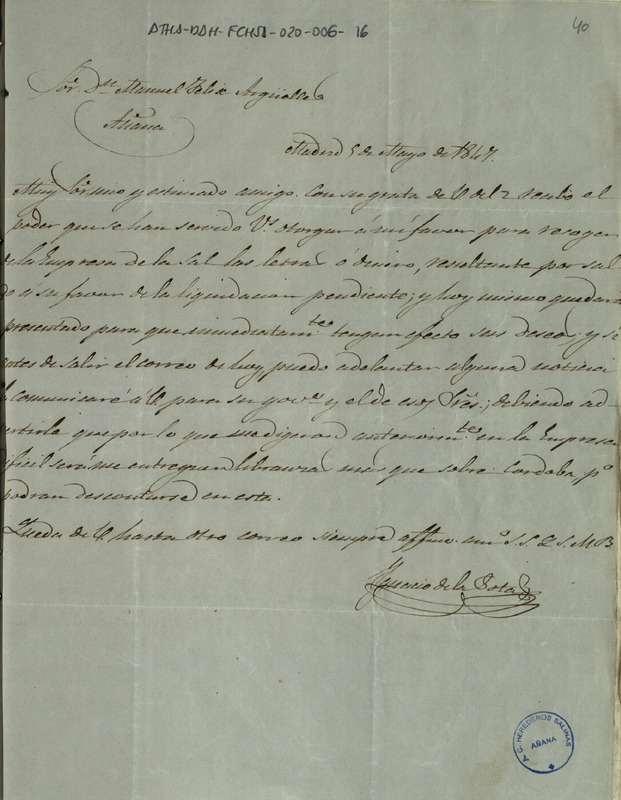 ATHA-DAH-FCHSA-020-006-16
40
Sor. Dn. Manuel Felix Arguelles
Añana
Madrid 5 de Mayo de 1847.
Muy Sor. mio y estimado amigo. Con su grata de V. del 2 recibo el
poder que se han servido Vs. otorgar á mi favor para recoger
de la Empresa de la Sal las letras ó dinero, resultante por sal
do á su favor de la liquidacion pendiente; y hoy mismo quedará
presentado para que inmediatamte. tengan efecto sus deseos, y si
antes de salir el correo de hoy, puedo adelantar alguna noticia
lo comunicaré á V. para su govno. y el de esos Sres.; debiendo ad-
vertirle que por lo que me digeron anteriormte. en la Empresa
dificil será me entreguen libranza mas que sobre Cordoba, po.
podran descontarse en esta.
Queda de V. hasta otro correo siempre affmo. amo. S. S. Q. S. M. B.
Ignacio de la
A. C. HEREDEROS SALINAS
AÑANA